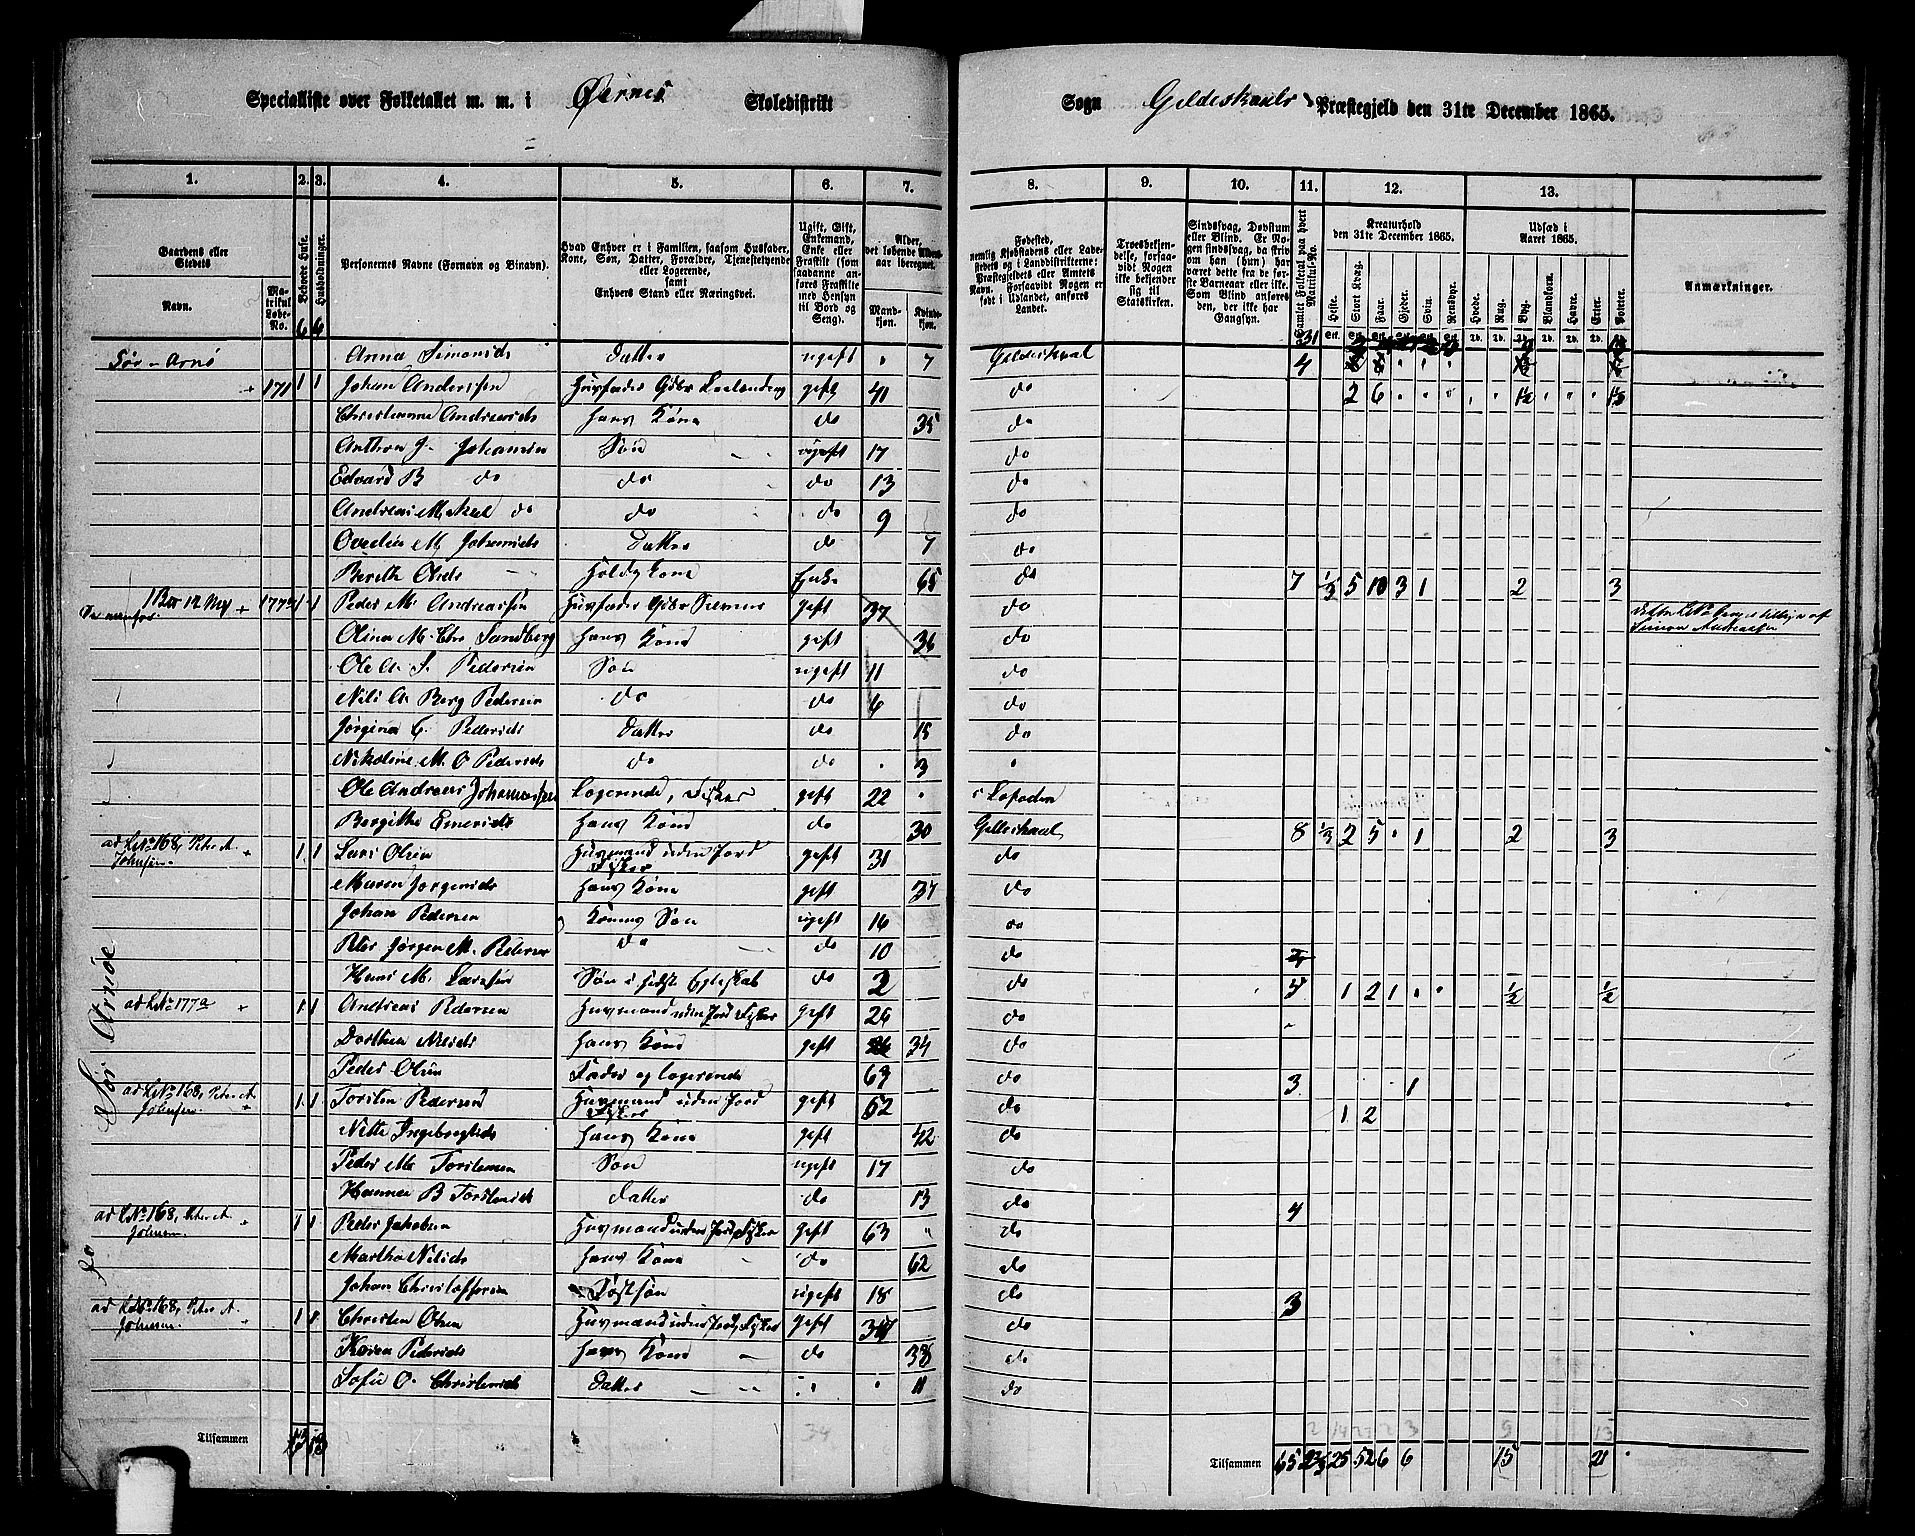 Specialliste over Folketallet m. m. i Øernes Skoledistrikt
Sogn Gildeskaals Præstegjeld den 31te December 1865.
1. 2. 3. 4. 5. 6. 7. 8. 9. 10. 11. 12. 13.
Gaardens eller Stedets
Navn.
Matrikul Løbe-No.
Beboede Huse.
Husholdninger.
6 6
Personernes Navne (Fornavn og Binavn).
Hvad Enhver er i Familien, saasom Husfader, Kone, Søn, Datter, Forældre, Tjenestetyende eller Logerende, samt Enhvers Stand eller Næringsvei.
Ugift, Gift, Enkemand, Enke eller Fraskilt (som saadanne anføres Fraskilte med Hensyn til Bord og Seng).
Alder, det løbende Alders-aar iberegnet.
Mandkjøn. Kvindekjøn.
Fødested, nemlig Kjøbstadens eller Ladestedets og i Landdistrikterne: Præstegjeldets eller Amtets Navn. Forsaavidt Nogen er født i Udlandet, anføres Landet.
Troesbekjendelse, forsaavidt Nogen ikke bekjender sig til Statskirken.
Sindssvag, Døvstum eller Blind. Er Nogen sindssvag, da fridom han (hun) har været dette fra de første Barneaar eller Blind anføres den, der ikke har Gangsyn.
Samlet Folketal paa hvert Matrikul-No.
Kreaturhold den 31te December 1865.
Heste. Stort Kvæg. Faar. Gjeder. Svin. Rensdyr.
Udsæd i Aaret 1865.
Hvede. Rug. Byg. Blandkorn. Havre. Erter. Poteter.
Anmærkninger.
Sør-Arnø Anna Simonsds Datter ugift 7 Gildeskaal 4
171 1 1 Johan Andersen Huusfader Gbr Leilending gift 41 do 2 6
Christianna Andreasds hans Kone do 35 do
Anthon J. Johansen Søn ugift 17 do
Edvard B do do do 13 do
Andreas Mikal do do do 9 do
Ovedia M Johansds Datter do 7 do
Berith Olsds Enke 65 do 7 5 10 3 1 2 3
177 1 1 Peder M. Andreassen Huusfader Gbr gift 37 do
Simon Andreassen
Olina M. Chr. Sandberg hans Kone 36 do
Ole A S. Pedersen Søn ugift 11 do
Nils A Berg Pedersen do do 6 do
Jørgina C. Pedersds Datter do 15 do
Nikoline M. O Pedersds do do 3
Ole Andreas Johannessen Logerende, Fisker gift 22 i Lofoden
Bergithe hans Kone do 30 Gildeskaal 8 2 5 1 2 3
ad LNo 168, Peter A Johnsen 1 1 Lars Olsen Huusmand uden Jord Fisker gift 31 do
Maren Jørgensds hans Kone gift 37 do
Johan Pedersen Konens Søn ugift 16 do
Peter Jørgen M. Pedersen do do 10 do
Hans M. Larssen Søn i sidste Egteskab do 2 do 5 1 2 1 ½ ½
ad LNo 177a 1 1 Andreas Pedersen Huusmand uden Jord Fisker gift 26 do
Dorthea Nilsds hans Kone gift 34 do
Peder Olsen Fader og logerende 63 do 3 1
ad LNo 168, Peter A Johnsen 1 1 Torsten Pedersen Huusmand uden Jord Fisker gift 52 do 1 2
Nette Ingebrigtsds hans Kone gift 42 do
Peder M Torstensen Søn ugift 17 do
Hanna B Torstensds Datter do 13 do 4
ad LNo 168, Peter A. Johnsen 1 1 Peder Jakobsen Huusmand uden Jord, Fisker gift 63 do
Martha Nilsds hans Kone do 62 do
Johan Christoffersen Fostsøn ugift 18 do 3
ad LNo 168, Peter A. Johnsen 1 Christen Olsen Huusmand uden Jord, Fisker gift do
Karen Pedersds hans Kone do 38 do
Sofie O. Christensds Datter 11 do
Sør Arnøe
do
Tilsammen 13 13
Tilsammen 65 25 52 6 6 15 21